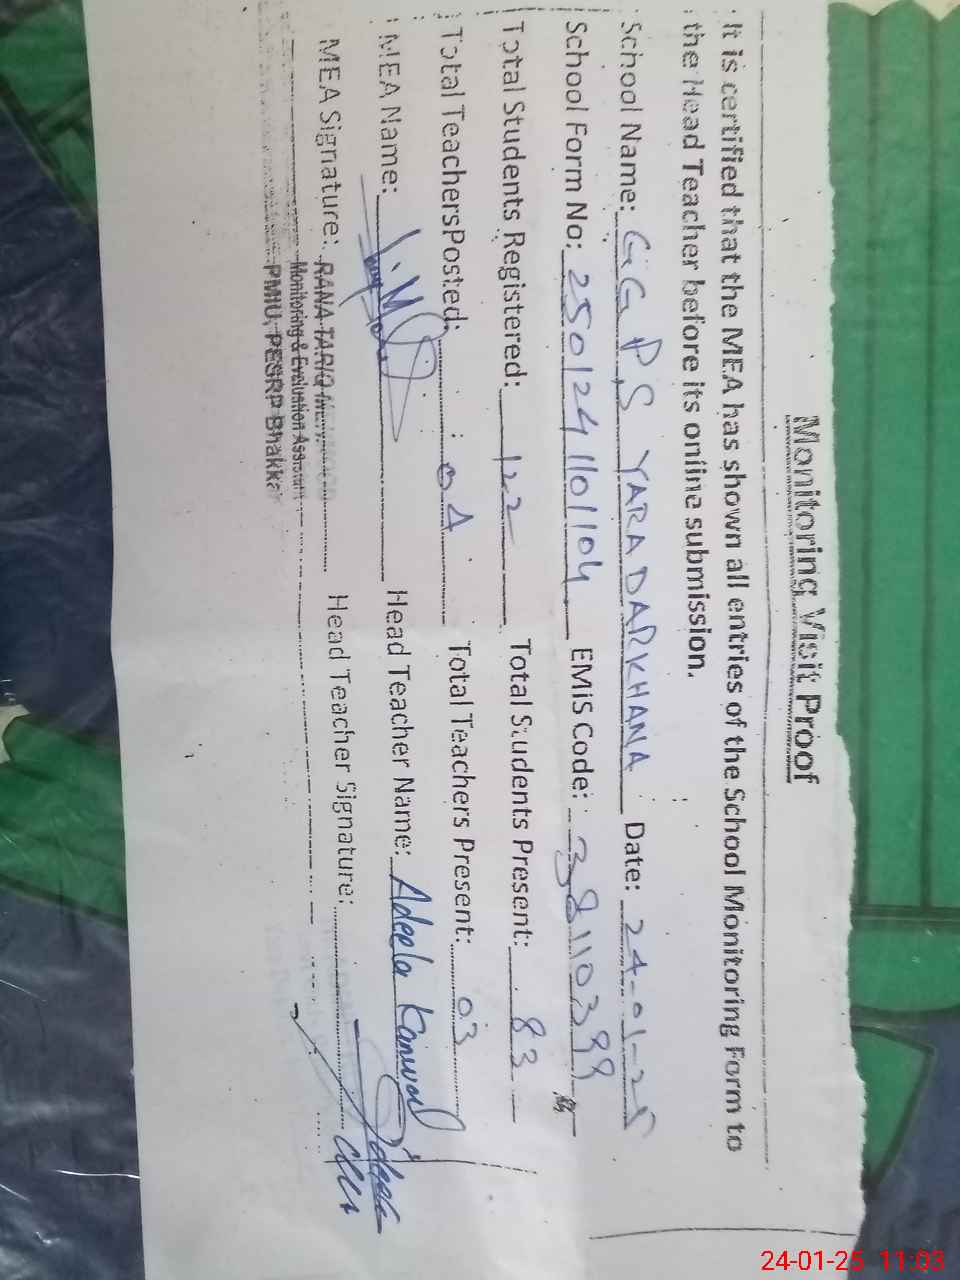 Monitoring Visit Proof
It is certified that the MEA has shown all entries of the School Monitoring Form to
the Head Teacher before its online submission.
School Name: GGPS YARA DARKHANA Date: 24-01-25
School Form No: 2501241101104 EMIS Code: 38110399
Total Students Registered: 122 Total Students Present: 83
Total Teachers Posted: 04 Total Teachers Present: 03
MEA Name: Head Teacher Name: Adeela Kanwal
MEA Signature: RANA TARIQ Head Teacher Signature:
Monitoring & Evaluation Assistant
PMIU, PESRP Bhakkar
24-01-25 11:03